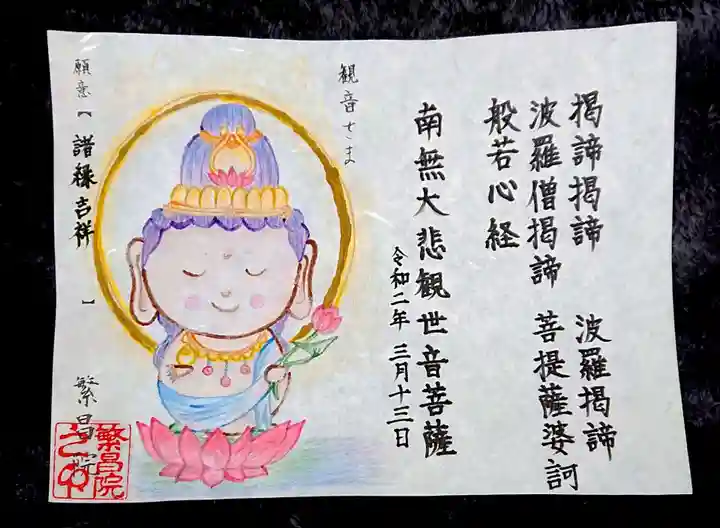 羯諦羯諦 波羅羯諦
波羅僧羯諦 菩提薩婆訶
般若心経
南無大悲観世音菩薩
令和二年 三月十三日
観音さま
願意【諸縁吉祥 】
繁昌院
繁昌院